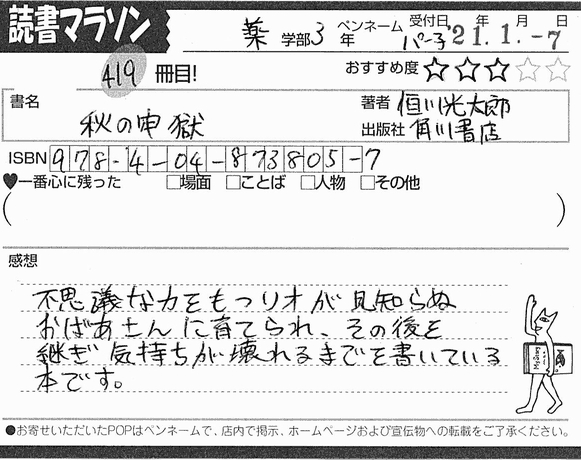 読書マラソン
薬 学部 3 年 ペンネーム パー子 受付日 '21. 1. -7 年 月 日
419 冊目!
おすすめ度 ★★★☆☆
書名
秋の牢獄
著者 恒川光太郎
出版社 角川書店
ISBN 978-4-04-873805-7
♥一番心に残った □場面 □ことば □人物 □その他
( )
感想
不思議な力をもつリオが見知らぬ
おばあさんに育てられ、その後を
継ぎ気持ちが壊れるまでを書いている
本です。
●お寄せいただいたPOPはペンネームで、店内で掲示、ホームページおよび宣伝物への転載をご了承ください。